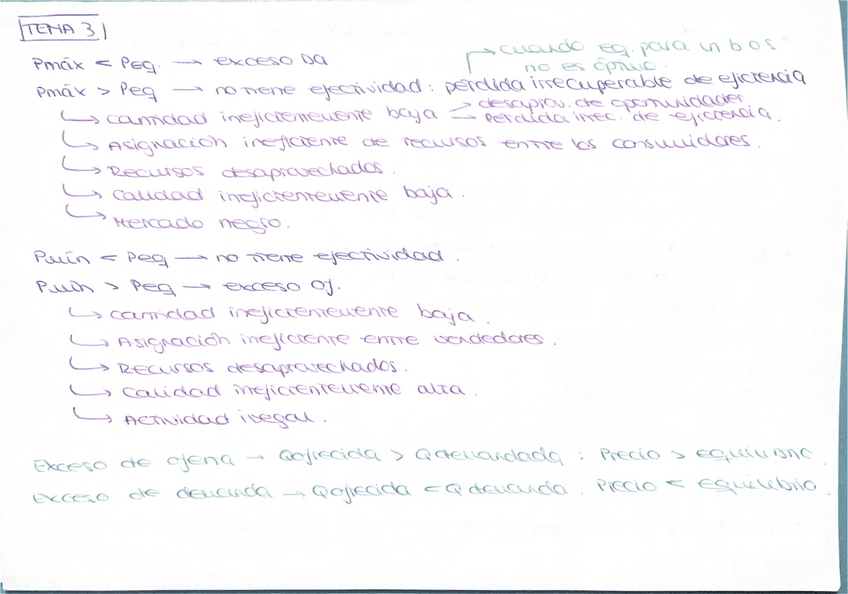 TEMA 3
Pmáx < Peq. → exceso DA
cuando eq. para un b o s
no es óptimo.
Pmáx > Peq → no tiene efectividad : pérdida irrecuperable de eficiencia
↳ cantidad ineficientemente baja → desaprov. de oportunidades
→ Pérdida irrec. de eficiencia.
↳ Asignación ineficiente de recursos entre los consumidores.
↳ Recursos desaprovechados.
↳ Calidad ineficientemente baja.
↳ Mercado negro.
Pmín < Peq → no tiene efectividad.
Pmín > Peq → exceso Of.
↳ cantidad ineficientemente baja.
↳ Asignación ineficiente entre vendedores.
↳ Recursos desaprovechados.
↳ Calidad ineficientemente alta.
↳ Actividad ilegal.
Exceso de oferta → Qofrecida > Qdemandada : Precio > equilibrio
Exceso de demanda → Qofrecida < Qdemanda : Precio < equilibrio.